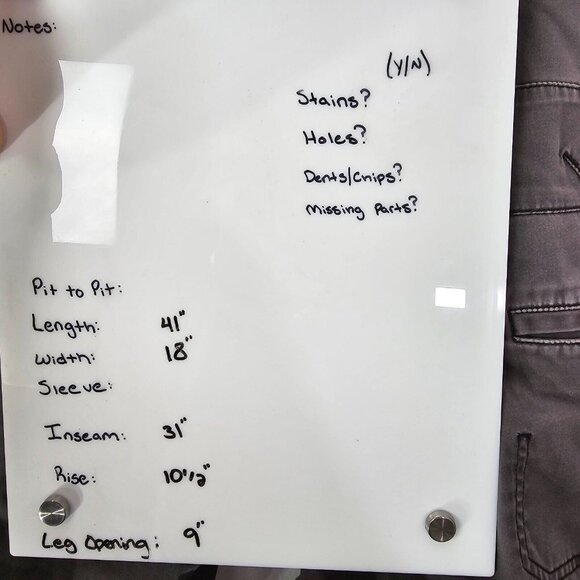 Notes:
(Y/N)
Stains?
Holes?
Dents/Chips?
Missing Parts?
Pit to Pit:
Length: 41"
Width: 18"
Sleeve:
Inseam: 31"
Rise: 10 1/2"
Leg Opening: 9"